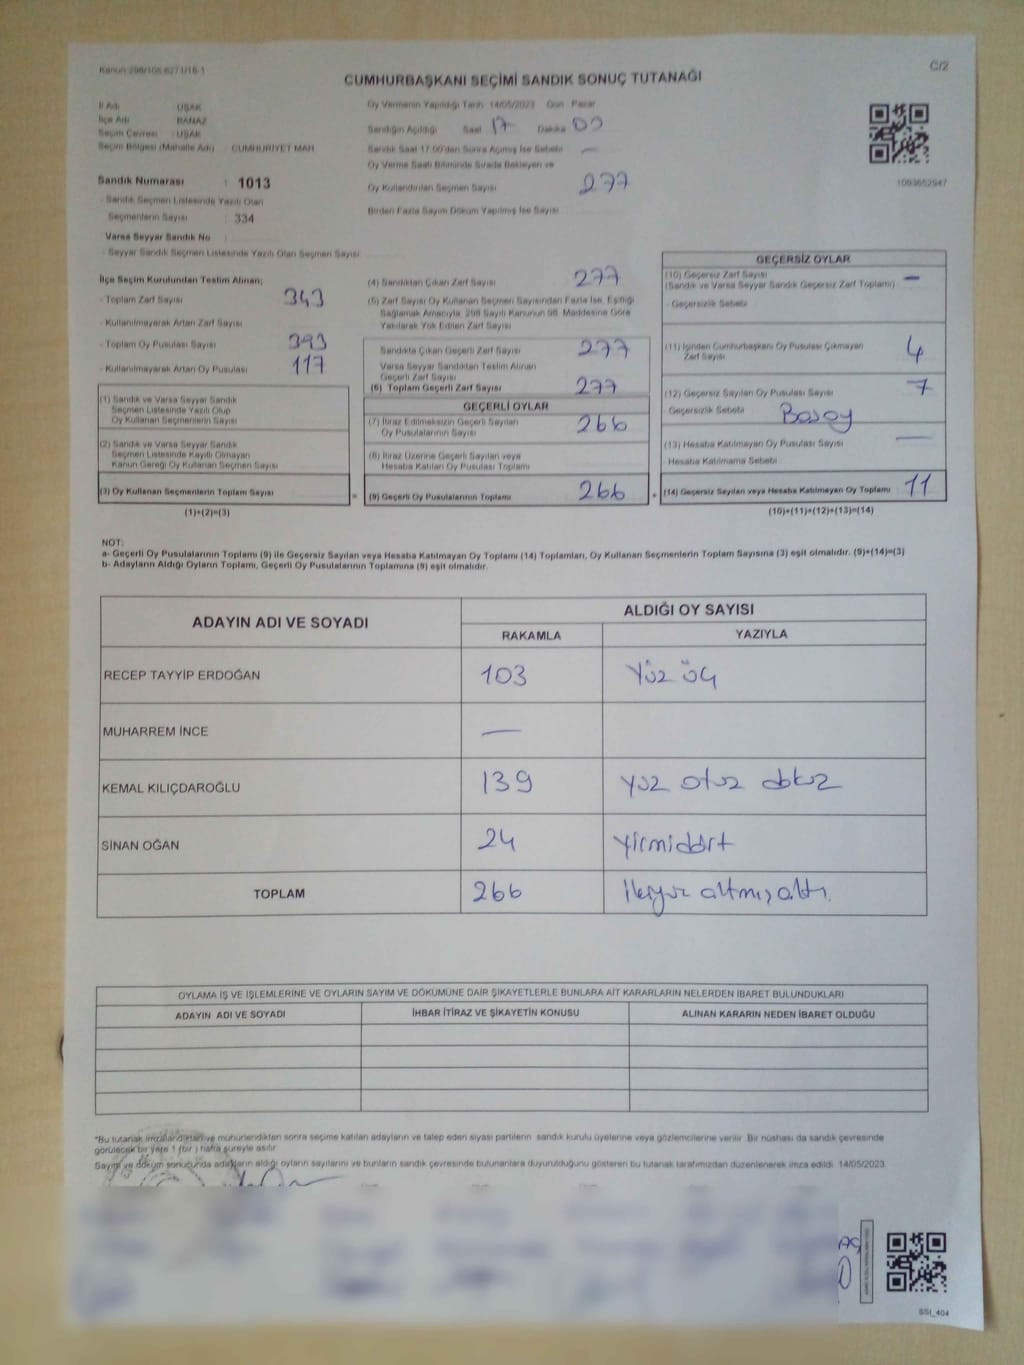 Kanun 298/105-6271/16-1
C/2
CUMHURBAŞKANI SEÇİMİ SANDIK SONUÇ TUTANAĞI
İl Adı UŞAK
İlçe Adı BANAZ
Seçim Çevresi : UŞAK
Seçim Bölgesi (Mahalle Adı) CUMHURİYET MAH
Oy Vermenin Yapıldığı Tarih 14/05/2023 Gün Pazar
Sandığın Açıldığı Saat 17 Dakika 00
Sandık Saat 17:00'dan Sonra Açılmış İse Sebebi —
Oy Verme Saati Bitiminde Sırada Bekleyen ve
Oy Kullandırılan Seçmen Sayısı 277
Birden Fazla Sayım Döküm Yapılmış İse Sayısı
1093652947
Sandık Numarası : 1013
- Sandık Seçmen Listesinde Yazılı Olan
Seçmenlerin Sayısı : 334
Varsa Seyyar Sandık No
- Seyyar Sandık Seçmen Listesinde Yazılı Olan Seçmen Sayısı
İlçe Seçim Kurulundan Teslim Alınan;
- Toplam Zarf Sayısı 343
- Kullanılmayarak Artan Zarf Sayısı
- Toplam Oy Pusulası Sayısı 393
- Kullanılmayarak Artan Oy Pusulası 117
(1) Sandık ve Varsa Seyyar Sandık
Seçmen Listesinde Yazılı Olup
Oy Kullanan Seçmenlerin Sayısı
(2) Sandık ve Varsa Seyyar Sandık
Seçmen Listesinde Kayıtlı Olmayan
Kanun Gereği Oy Kullanan Seçmen Sayısı
(3) Oy Kullanan Seçmenlerin Toplam Sayısı =
(1)+(2)=(3)
(4) Sandıktan Çıkan Zarf Sayısı 277
(5) Zarf Sayısı Oy Kullanan Seçmen Sayısından Fazla İse, Eşitliği
Sağlamak Amacıyla, 298 Sayılı Kanunun 98. Maddesine Göre
Yakılarak Yok Edilen Zarf Sayısı
Sandıkta Çıkan Geçerli Zarf Sayısı 277
Varsa Seyyar Sandıktan Teslim Alınan
Geçerli Zarf Sayısı
(6) Toplam Geçerli Zarf Sayısı 277
GEÇERLİ OYLAR
(7) İtiraz Edilmeksizin Geçerli Sayılan
Oy Pusulalarının Sayısı 266
(8) İtiraz Üzerine Geçerli Sayılan veya
Hesaba Katılan Oy Pusulası Toplamı
(9) Geçerli Oy Pusulalarının Toplamı 266 +
GEÇERSİZ OYLAR
(10) Geçersiz Zarf Sayısı —
(Sandık ve Varsa Seyyar Sandık Geçersiz Zarf Toplamı)
- Geçersizlik Sebebi
(11) İçinden Cumhurbaşkanı Oy Pusulası Çıkmayan
Zarf Sayısı 4
(12) Geçersiz Sayılan Oy Pusulası Sayısı 7
Geçersizlik Sebebi
(13) Hesaba Katılmayan Oy Pusulası Sayısı —
Hesaba Katılmama Sebebi
(14) Geçersiz Sayılan veya Hesaba Katılmayan Oy Toplamı 11
(10)+(11)+(12)+(13)=(14)
NOT:
a- Geçerli Oy Pusulalarının Toplamı (9) ile Geçersiz Sayılan veya Hesaba Katılmayan Oy Toplamı (14) Toplamları, Oy Kullanan Seçmenlerin Toplam Sayısına (3) eşit olmalıdır. (9)+(14)=(3)
b- Adayların Aldığı Oyların Toplamı, Geçerli Oy Pusulalarının Toplamına (9) eşit olmalıdır.
ADAYIN ADI VE SOYADI ALDIĞI OY SAYISI
RAKAMLA YAZIYLA
RECEP TAYYİP ERDOĞAN 103 Yüz üç
MUHARREM İNCE —
KEMAL KILIÇDAROĞLU 139 Yüz otuz dokuz
SİNAN OĞAN 24 Yirmidört
TOPLAM 266 ikiyüz altmışaltı.
OYLAMA İŞ VE İŞLEMLERİNE VE OYLARIN SAYIM VE DÖKÜMÜNE DAİR ŞİKAYETLERLE BUNLARA AİT KARARLARIN NELERDEN İBARET BULUNDUKLARI
ADAYIN ADI VE SOYADI İHBAR İTİRAZ VE ŞİKAYETİN KONUSU ALINAN KARARIN NEDEN İBARET OLDUĞU
*Bu tutanak imzalandıktan ve mühürlendikten sonra seçime katılan adayların ve talep eden siyasi partilerin sandık kurulu üyelerine veya gözlemcilerine verilir. Bir nüshası da sandık çevresinde
görülecek bir yere 1 (bir ) hafta süreyle asılır.
Sayım ve döküm sonucunda adayların aldığı oyların sayılarını ve bunların sandık çevresinde bulunanlara duyurulduğunu gösteren bu tutanak tarafımızdan düzenlenerek imza edildi. 14/05/2023
SSI_404